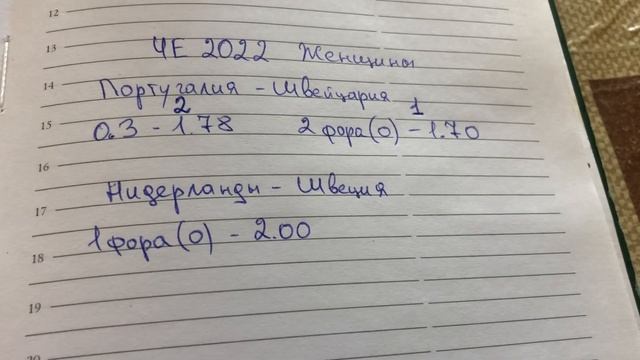 12
13 ЧЕ 2022 Женщины
14 Португалия - Швейцария
2 1
15 0.3 - 1.78 2 фора(0) - 1.70
16
Нидерланды - Швеция
17
1 фора(0) - 2.00
18
19
20